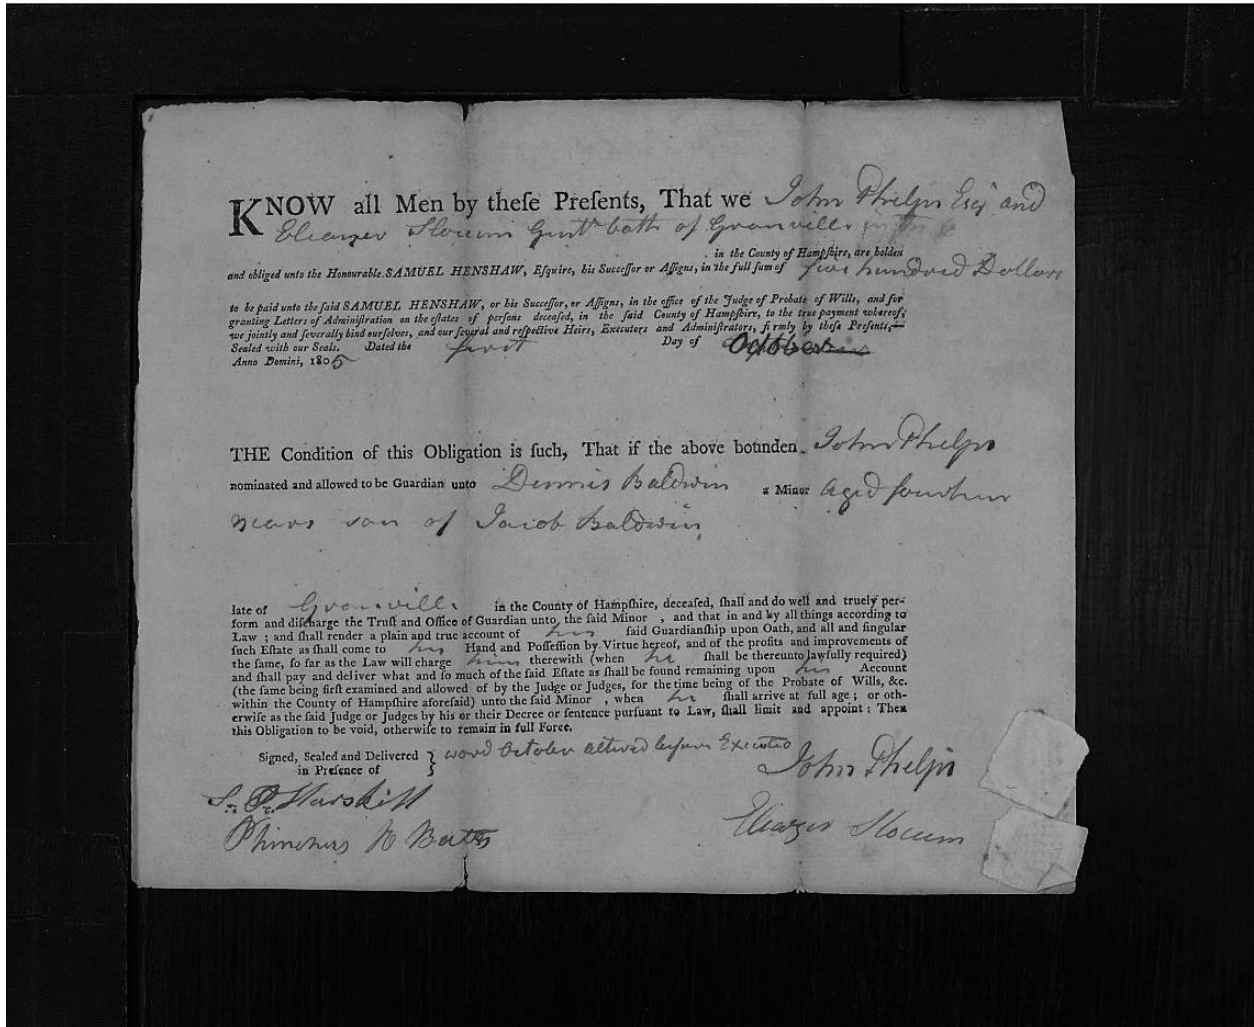 KNOW all Men by theſe Preſents, That we John Phelps Esq and
Eleazer Slocum Gent both of Granville in the
in the County of Hampſhire, are holden
and obliged unto the Honourable SAMUEL HENSHAW, Eſquire, his Succeſſor or Aſſigns, in the full ſum of five hundred Dollars
to be paid unto the ſaid SAMUEL HENSHAW, or his Succeſſor, or Aſſigns, in the office of the Judge of Probate of Wills, and for
granting Letters of Adminiſtration on the eſtates of perſons deceaſed, in the ſaid County of Hampſhire, to the true payment whereof,
we jointly and ſeverally bind ourſelves, and our ſeveral and reſpective Heirs, Executors and Adminiſtrators, firmly by theſe Preſents,—
Sealed with our Seals. Dated the first Day of October
Anno Domini, 1805
THE Condition of this Obligation is ſuch, That if the above bounden John Phelps
nominated and allowed to be Guardian unto Dennis Baldwin a Minor aged fourteen
years son of Jacob Baldwin
late of Granville in the County of Hampſhire, deceaſed, ſhall and do well and truely per-
form and diſcharge the Truſt and Office of Guardian unto the ſaid Minor , and that in and by all things according to
Law ; and ſhall render a plain and true account of his ſaid Guardianſhip upon Oath, and all and ſingular
ſuch Eſtate as ſhall come to his Hand and Poſſeſſion by Virtue hereof, and of the profits and improvements of
the ſame, ſo far as the Law will charge him therewith (when he ſhall be thereunto lawfully required)
and ſhall pay and deliver what and ſo much of the ſaid Eſtate as ſhall be found remaining upon his Account
(the ſame being firſt examined and allowed of by the Judge or Judges, for the time being of the Probate of Wills, &c.
within the County of Hampſhire aforeſaid) unto the ſaid Minor , when he ſhall arrive at full age ; or oth-
erwiſe as the ſaid Judge or Judges by his or their Decree or ſentence purſuant to Law, ſhall limit and appoint : Then
this Obligation to be void, otherwiſe to remain in full Force.
Signed, Sealed and Delivered } word October altered before Executed
in Preſence of
John Phelps
Eleazer Slocum
Bates